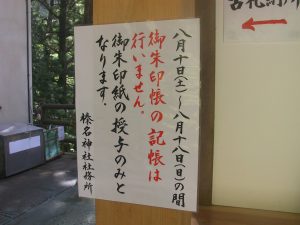 八月十日(土)~八月十八日(日)の間
御朱印帳の記帳は
行いません。
御朱印紙の授与のみと
なります。
榛名神社社務所
古札納所